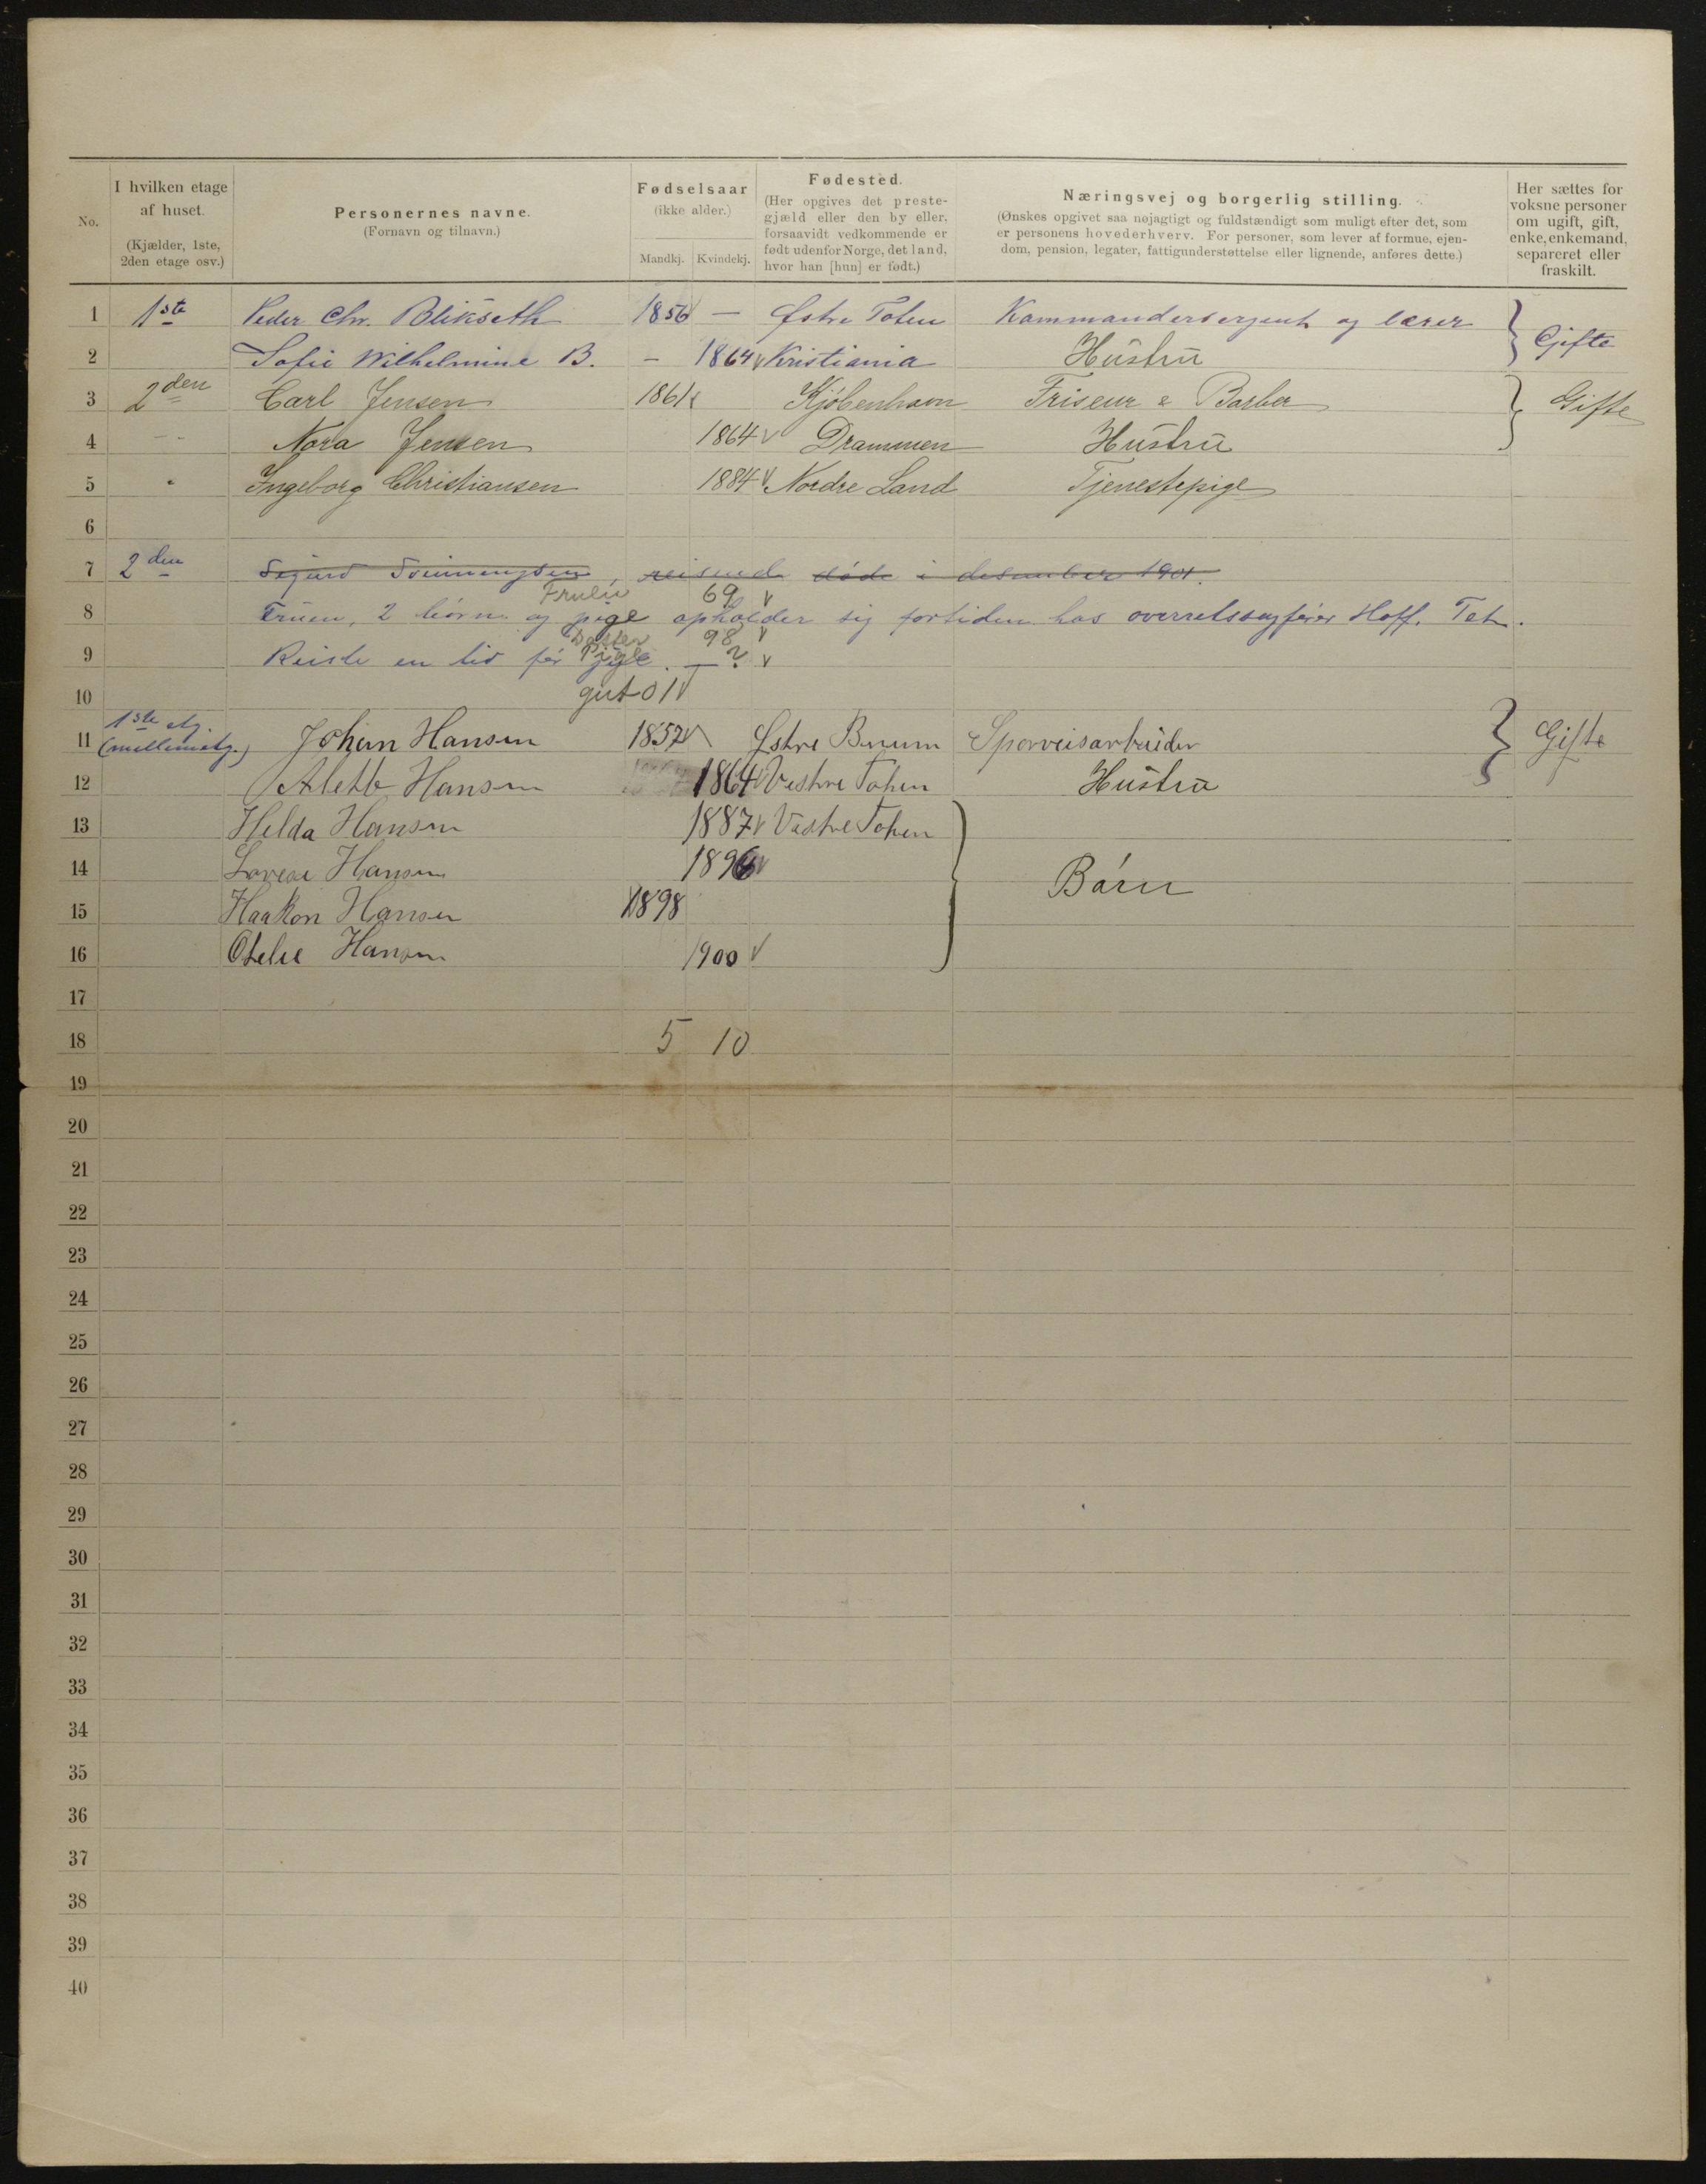 No.
I hvilken etage af huset. (Kjælder, 1ste, 2den etage osv.)
Personernes navne. (Fornavn og tilnavn.)
Fødselsaar (ikke alder.)
Mandkj. Kvindekj.
Fødested. (Her opgives det prestegjæld eller den by eller, forsaavidt vedkommende er født udenfor Norge, det land, hvor han [hun] er født.)
Næringsvej og borgerlig stilling. (Ønskes opgivet saa nøjagtigt og fuldstændigt som muligt efter det, som er personens hovederhverv. For personer, som lever af formue, ejendom, pension, legater, fattigunderstøttelse eller lignende, anføres dette.)
Her sættes for voksne personer om ugift, gift, enke, enkemand, separeret eller fraskilt.
1 1ste Peder Chr. Blikseth 1856 — Østre Toten Kommandersergent og lærer Gifte
2 Sofie Wilhelmine B. — 1864 Kristiania Hustru
3 2den Carl Jensen 1861 Kjøbenhavn Friseur & Barber Gifte
4 Nora Jensen 1864 Drammen Hustru
5 Ingeborg Christiansen 1884 Nordre Land Tjenestepige
6
7 2den Sigurd reisende døde i desember 1901.
Fruen 69
8 Fruen, 2 børn og pige opholder sig fortiden hos overretssagfører Hoff.
Datter 98
9 Reiste en tid før jul. Pige — ?
10 gut 01
11 1ste etg. (mellemetg.) Johan Hansen 1857 Østre Sporveisarbeider Gifte
12 Alette Hansen 1864 Vestre Toten Hustru
13 Helda Hansen 1887 Vestre Toten
14 Hansen 1896 Børn
15 Haakon Hansen 1898
16 Otelie Hansen 1900
17
18 5 10
19
20
21
22
23
24
25
26
27
28
29
30
31
32
33
34
35
36
37
38
39
40